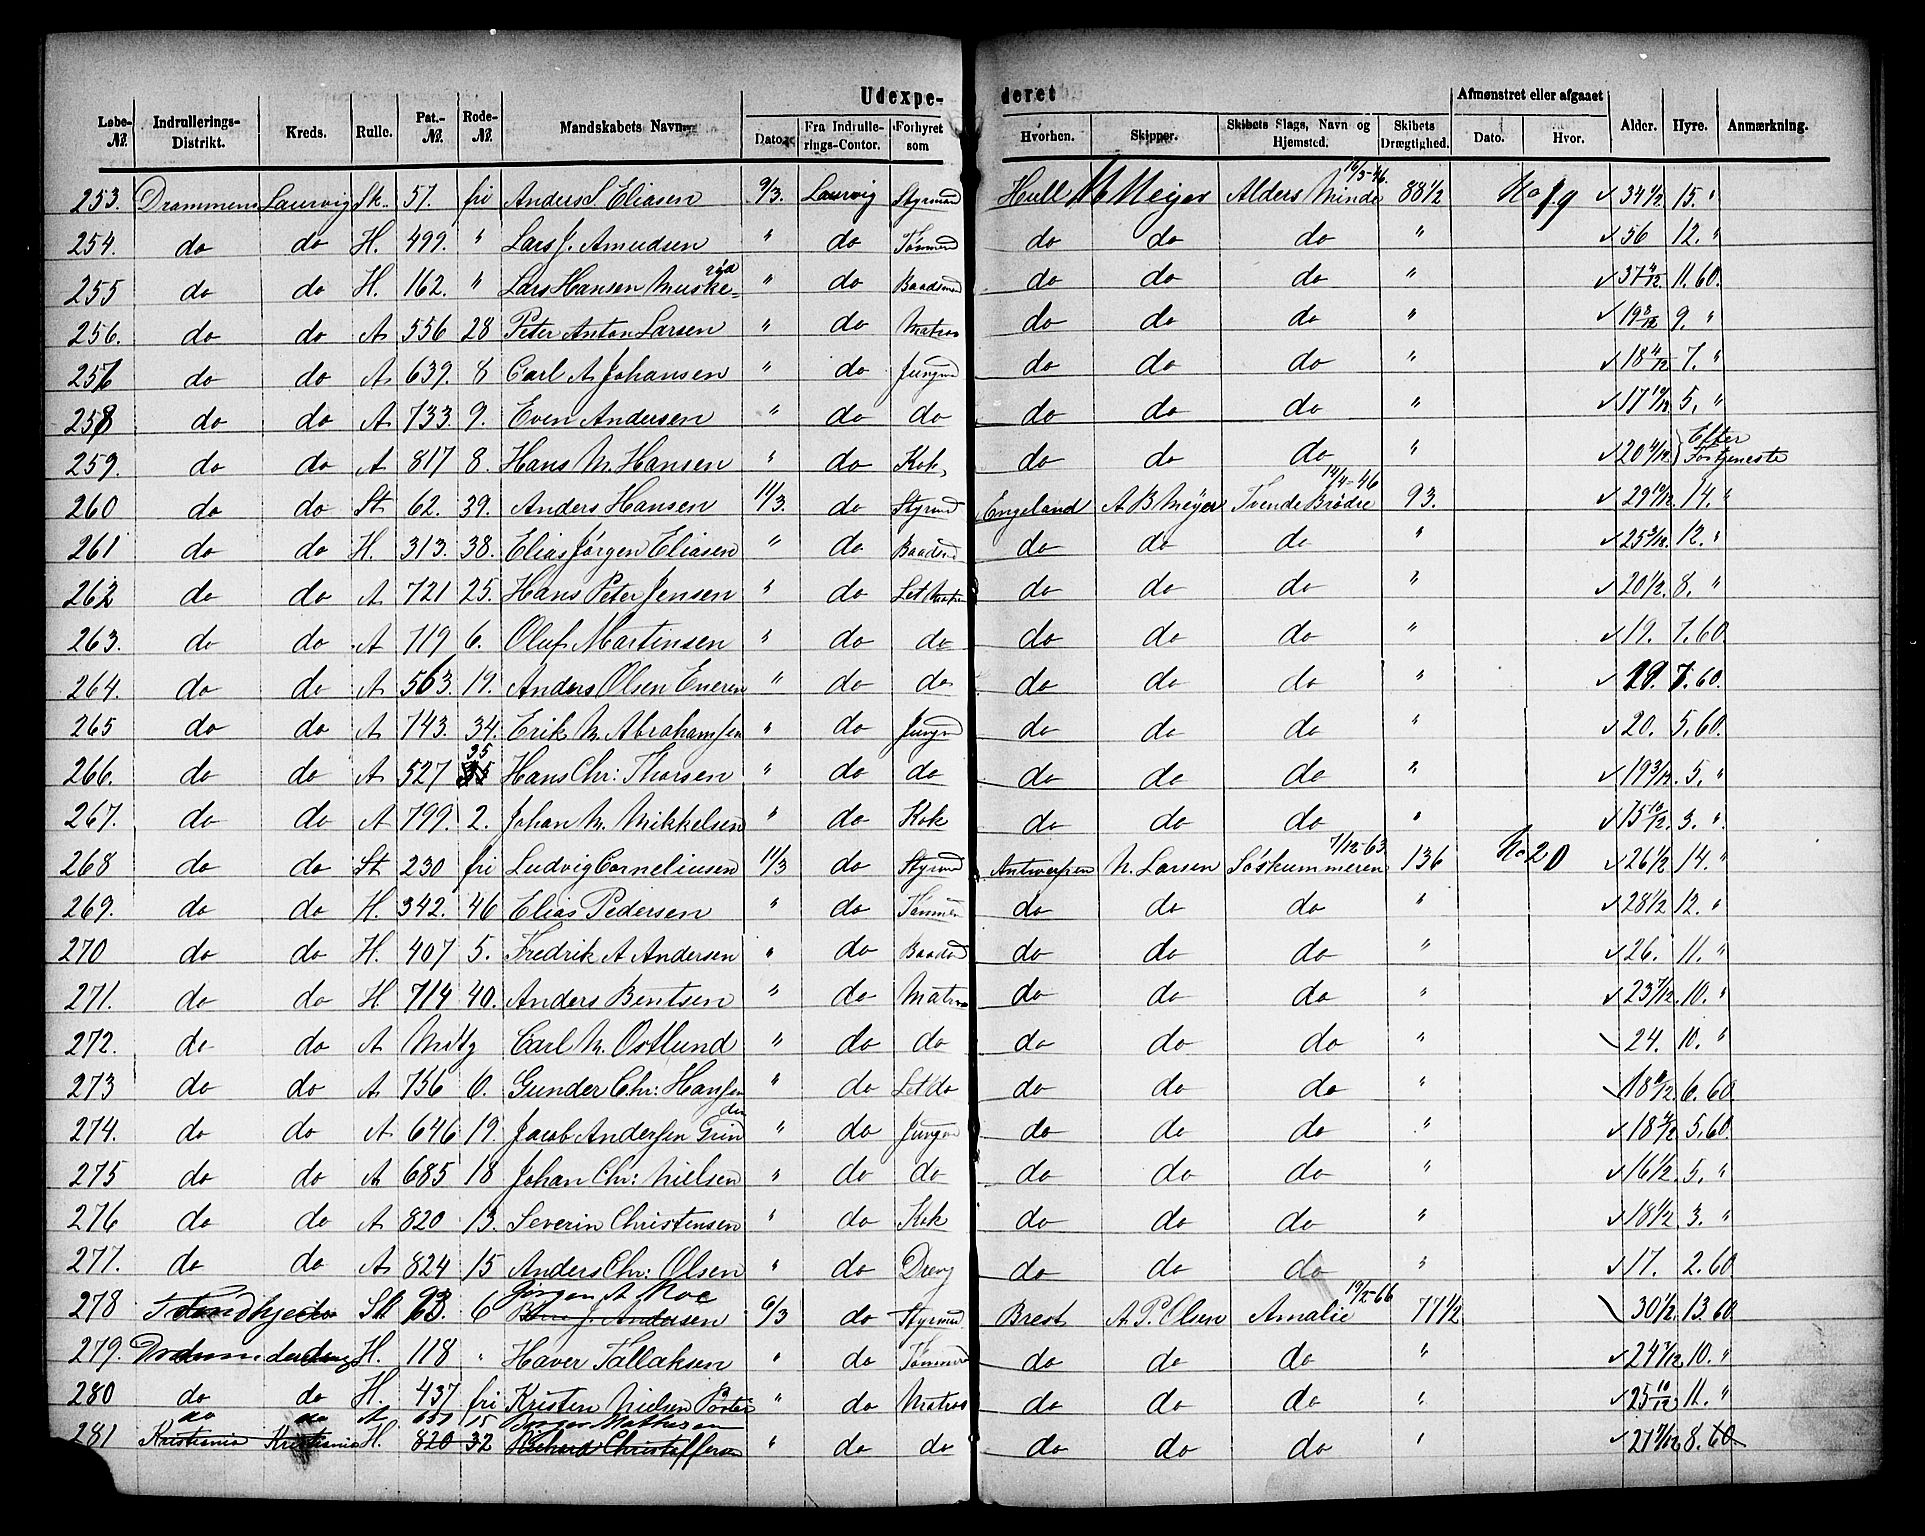 Udexpe- deret
Løbe-№. Indrullerings-Distrikt. Kreds. Rulle. Pat.-№. Rode-№. Mandskabets Navn. Dato. Fra Indrulle-rings-Contor. Forhyret som Hvorhen. Skipper. Skibets Slags, Navn og Hjemsted. Skibets Drægtighed. Afmønstret eller afgaaet Dato. Hvor. Alder. Hyre. Anmærkning.
253. Drammens Laurvig Sk. 57. fri Anders S Eliasen 9/3. Laurvig Styrmd Hull Meijer Alders Minde 16/3-46. 88 1/2 No 19 34 1/2 15. "
254. do do H. 499. " Lars J. Amudsen " do Tømmd do do do " 56 12. "
255 do do H. 162. " Lars Hansen Muske-rød " do Baadsmd do do do " 37 11. 60.
256. do do A 556 28 Peter Anton Larsen " do Matros do do do " 19 8/12 9. "
257 do do A 639. 8 Carl A Johansen " do Jungmd do do do " 18 7. "
258 do do A 733. 9. Even Andersen " do do do do do " 17 10/12 5. "
259. do do A 817 8. Hans M. Hansen " do Kok do do do " 20 Efter Fortjeneste
260 do do St 62. 39. Anders Hansen 11/3. do Styrmd Engeland A B Meijer Tvende Brødre 14/4-46 93. 29 10/12 14. "
261 do do H. 313. 38. Elias Jørgen Eliasen " do Baadsmd do do do " 25 12. "
262 do do A 721 25. Hans Peter Jensen " do Let Matr do do do " 20 1/2. 8. "
263. do do A 719 6. Oluf Martinsen " do do do do do " 19. 7. 60
264. do do A 563. 19. Anders Olsen Eneren " do do do do do " 19. 7. 60.
265 do do A 743. 34. Erik M. Abrahamsen " do Jungmd do do do " 20. 5. 60.
266. do do A 527 35 Hans Chr: Thorsen " do do do do do " 19 3/12. 5. "
267. do do A 799. 2. Johan M. Mikkelsen " do Kok do do do " 15 10/12. 3. "
268 do do St 230 fri Ludvig Corneliusen 11/3 do Styrmd Antwerpen N. Larsen Søskummeren 7/12-63 136 No 20 26 1/2 14. "
269. do do H. 342. 46 Elias Pedersen " do Tømmd do do do " 28 1/2 12. "
270 do do H. 407 5. Fredrik A Andersen " do Baadsd do do do " 26. 11. "
271. do do H 714 40. Anders Bentsen " do Matros do do do " 23 7/12. 10. "
272. do do A Carl M. Ostlund " do do do do do " 24. 10. "
273 do do A 756 6. Gunder Chr: Hansen " do Let do do do do " 18 6. 60
274. do do A 646 19. Jacob Andersen Grinden " do Jungmd do do do " 18 5. 60.
275 do do A 685 18 Johan Chr: Nielsen " do do do do do " 16 1/2. 5. "
276 do do A 820 13. Severin Christensen " do Kok do do do " 18 1/2 3. "
277. do do A 824 15 Anders Chr: Olsen " do Dreng do do do " 17. 2. 60
278 Sk 6 Jørgen A Moe J. Andersen 6/3 do Styrmd Brest A. P. Olsen Amalie 19/2-66 77 1/2 30 1/2. 13. 60
279. H. 118 " Haver Tallaksen " do Tømmd do do do " 24 7/12. 10. "
280 do do H. 437 fri Kristen Nielsen " do Matros do do do " 25 10/12 11. "
do do A 15 Mathisen
281 Kristiania Kristiania H. 820 32 Christoffersen " do do do do do " 21 8. 60